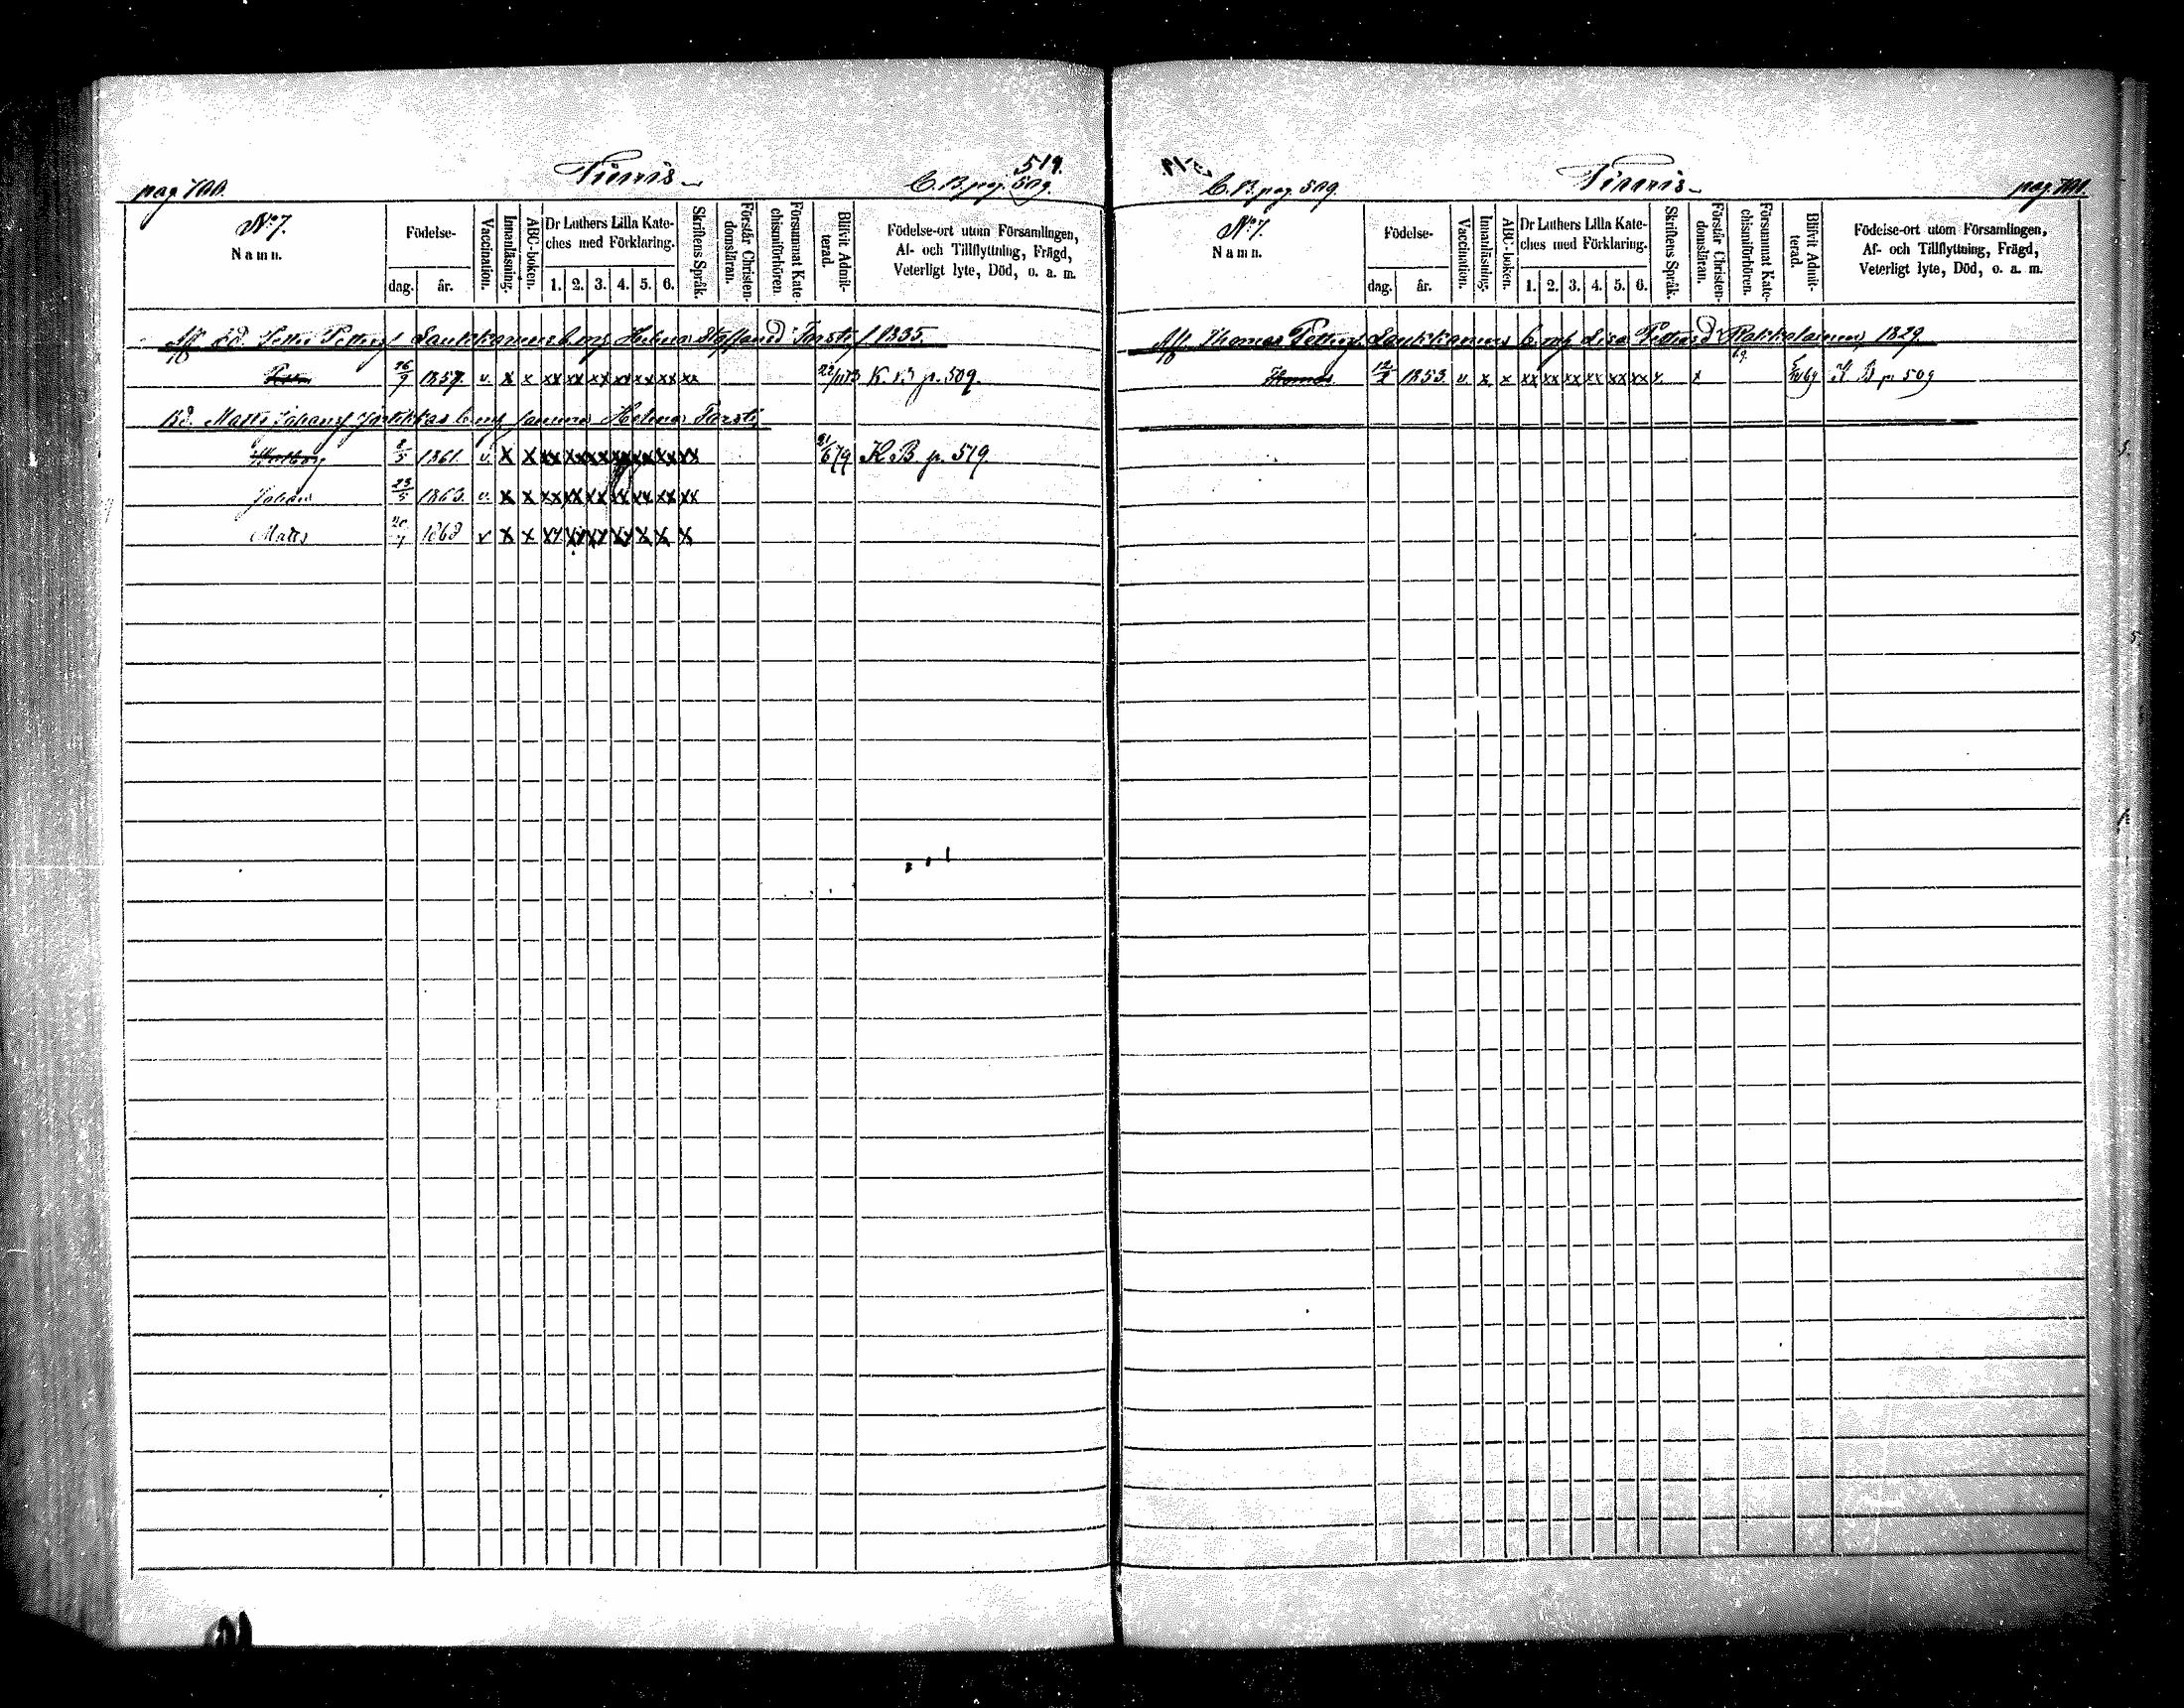 pag. 700.
519.
C. B. pag. 509.
No 7.
Namn.
Födelse-
dag.
år.
Vaccination.
Innanläsning.
ABC-boken.
Dr Luthers Lilla Kate-
ches med Förklaring.
1. 2. 3. 4. 5. 6.
Skriftens Språk.
Förstår Christen-
domsläran.
Försummat Kate-
chismiförhören.
Blifvit Admit-
terad.
Födelse-ort utom Församlingen,
Af- och Tillflyttning, Frägd,
Veterligt lyte, Död, o. a. m.
Petter Petters Helena Staffansd. 1835.
26/9 1857. v. x x xx xx xx xx xx xx xx K. B. p. 509.
Matts Johans Helena
8/5 1861. v. x x xx xx xx xx xx xx xx 79 K. B. p. 519.
Johan 23/5 1863. v. x x xx xx xx xx xx xx xx
Matts 1868 v x x xx xx xx xx x x x
C. B. pag. 509.
pag. 701.
No 7.
Namn.
Födelse-
dag.
år.
Vaccination.
Innanläsning.
ABC-boken.
Dr Luthers Lilla Kate-
ches med Förklaring.
1. 2. 3. 4. 5. 6.
Skriftens Språk.
Förstår Christen-
domsläran.
Försummat Kate-
chismiförhören.
Blifvit Admit-
terad.
Födelse-ort utom Församlingen,
Af- och Tillflyttning, Frägd,
Veterligt lyte, Död, o. a. m.
Thomas Petters Lisa Pettersd. 1829.
Thomas 1853. v. x x xx xx xx xx xx xx x. x 69 K B p 509